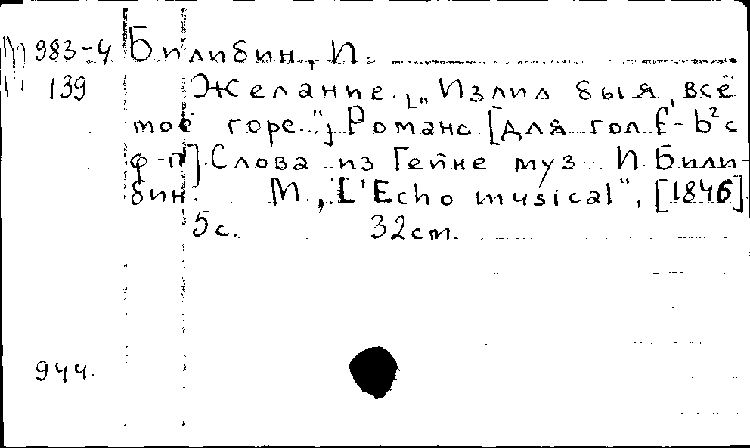 М 983-4 Билибин, И.
139 Желание. ["Излил бы я всё
моё горе..."] Романс [для гол. f-b²с
ф-п]. Слова из Гейне муз. И. Били-
бин. М., "L'Echo musical", [1846].
5с. 32cm.
944.